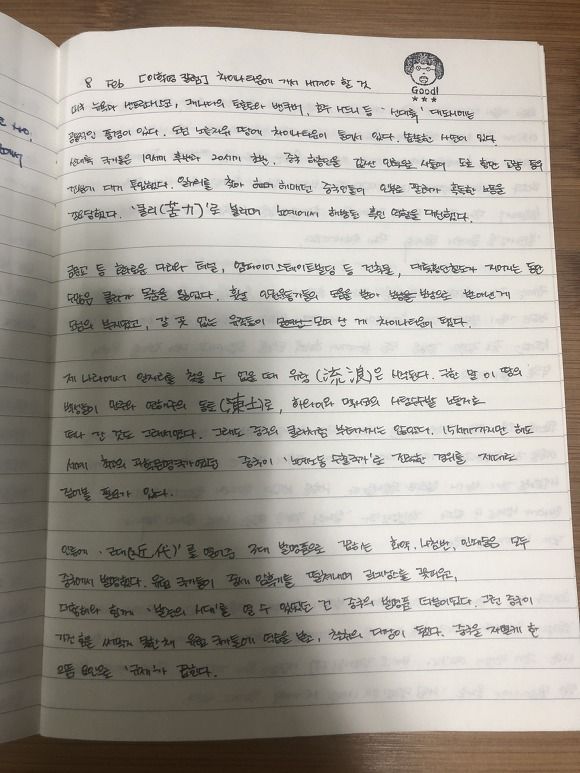 8 Feb [이학영 칼럼] 차이나타운에 가서 새겨야 할 것
Good!
미국 뉴욕과 샌프란시스코, 캐나다의 토론토와 밴쿠버, 호주 시드니 등 '신대륙' 대도시에는
공통적인 풍경이 있다. 도심 노른자위 땅에 차이나타운이 들어서 있다. 씁쓸한 사연이 있다.
신대륙 국가들은 19세기 후반과 20세기 초반, 중국 하층민을 값싼 인력으로 사들여 도로 항만 교량 등의
건설에 대거 투입했다. 일자리를 찾아 해외를 헤매던 중국인들이 인부로 팔려가 혹독한 노동을
감당했다. '쿨리(苦力)'로 불리며 노예에서 해방된 흑인 역할을 대신했다.
금문교 등 다리와 터널, 엠파이어스테이트빌딩 등 건축물, 대륙횡단철도가 지어지는 동안
수많은 쿨리가 목숨을 잃었다. 도심의 부지였고, 갈 곳 없는 유족들이 모여 난 게 차이나타운이 됐다.
제 나라에서 일자리를 찾을 수 없을 때 유랑(流浪)은 시작된다. 구한 말 이 땅의
백성들이 만주와 연해주의 동토(凍土)로, 하와이와 멕시코의 사탕수수밭 노동자로
떠나 간 것도 그래서였다. 그래도 중국의 쿨리처럼 부려지지는 않았다. 15세기까지만 해도
세계 최고의 과학문명국가였던 중국이 '노예노동 수출국가'로 전락한 경위를 제대로
짚어볼 필요가 있다.
인류에 '근대(近代)'를 열어준 3대 발명품으로 꼽히는 화약, 나침반, 인쇄술은 모두
중국에서 발명했다. 유럽 국가들이 중세 암흑기를 떨쳐내며 르네상스를 꽃피우고,
대항해와 함께 '발견의 시대'를 열 수 있었던 건 중국의 발명품 덕분이었다. 그런 중국이
가진 힘을 써먹지 못한 채 유럽 국가들에 역습을 받고, 침략의 대상이 됐다. 중국을 저렇게 한
으뜸 요인으로 '규제'가 꼽힌다.